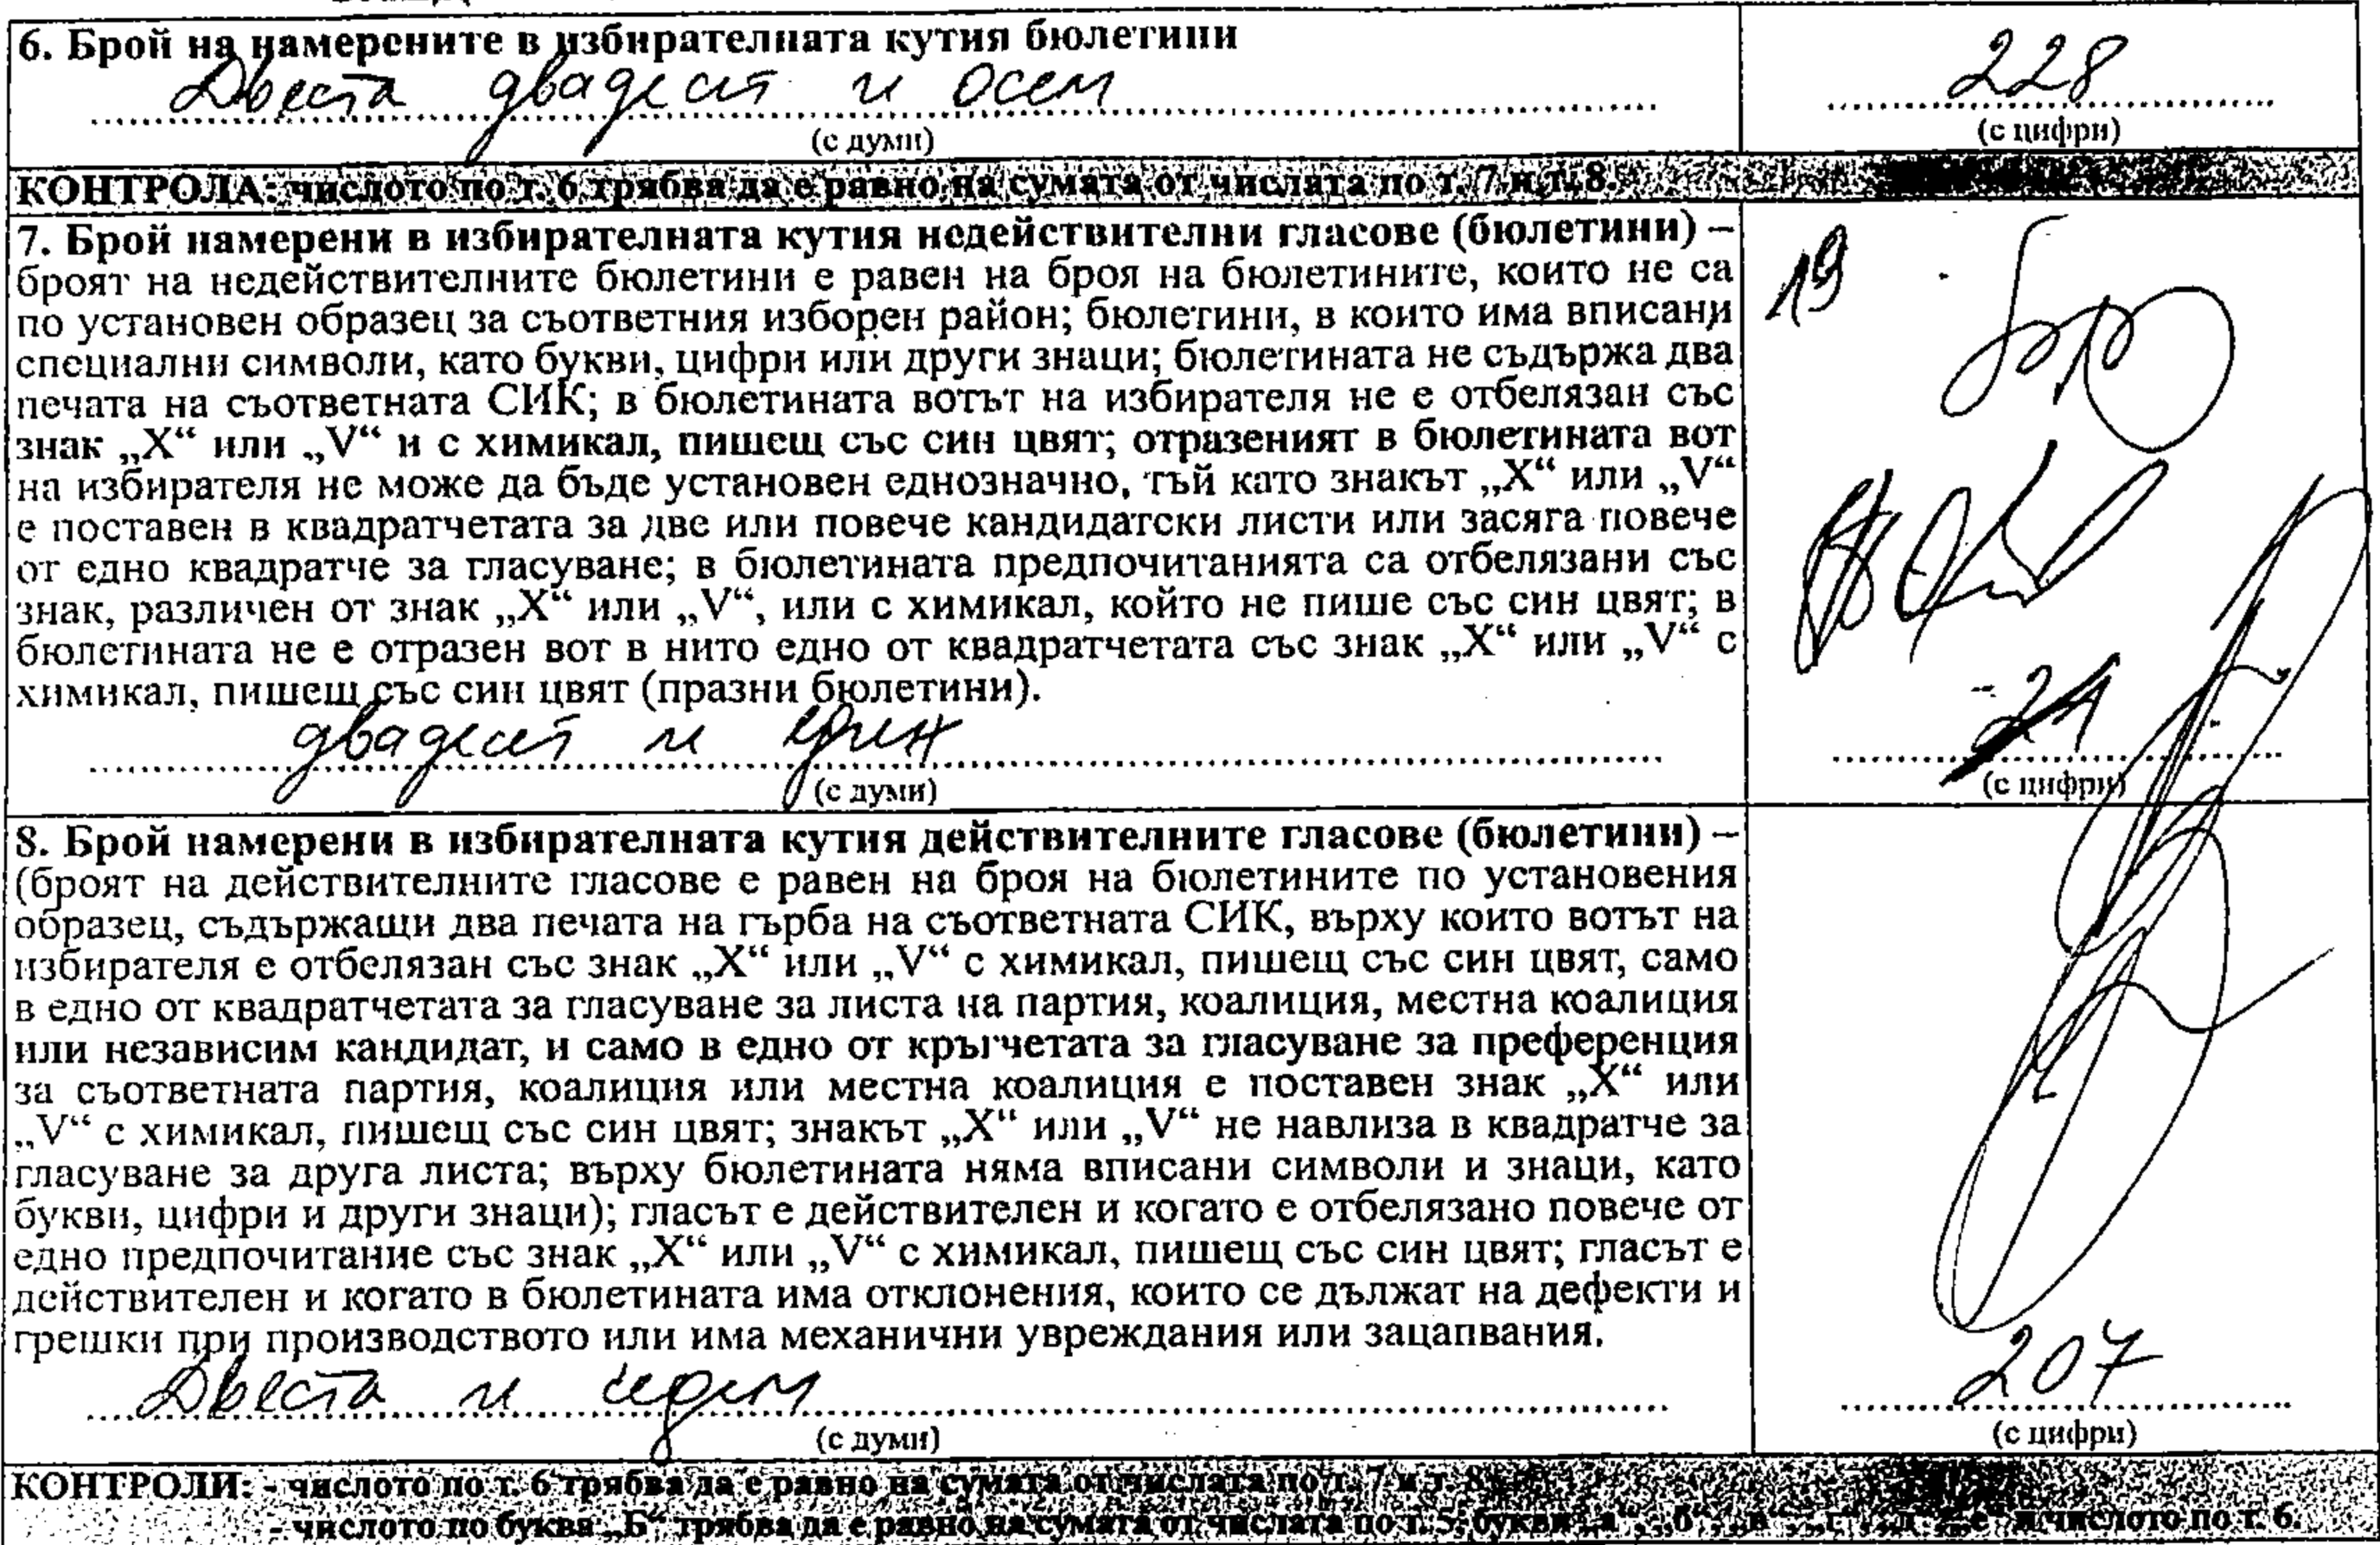 6. Брой на намерените в избирателната кутия бюлетини
Двеста двадесет и осем
228
(с думи)
(с цифри)
КОНТРОЛА: числото по т. 6 трябва да е равно на сумата от числата по т. 7 и т. 8.
7. Брой намерени в избирателната кутия недействителни гласове (бюлетини) –
броят на недействителните бюлетини е равен на броя на бюлетините, които не са
по установен образец за съответния изборен район; бюлетини, в които има вписани
специални символи, като букви, цифри или други знаци; бюлетината не съдържа два
печата на съответната СИК; в бюлетината вотът на избирателя не е отбелязан със
знак „X“ или „V“ и с химикал, пишещ със син цвят; отразеният в бюлетината вот
на избирателя не може да бъде установен еднозначно, тъй като знакът „X“ или „V“
е поставен в квадратчетата за две или повече кандидатски листи или засяга повече
от едно квадратче за гласуване; в бюлетината предпочитанията са отбелязани със
знак, различен от знак „X“ или „V“, или с химикал, който не пише със син цвят; в
бюлетината не е отразен вот в нито едно от квадратчетата със знак „X“ или „V“ с
химикал, пишещ със син цвят (празни бюлетини).
19
двадесет и един
21
(с думи)
(с цифри)
8. Брой намерени в избирателната кутия действителните гласове (бюлетини) –
(броят на действителните гласове е равен на броя на бюлетините по установения
образец, съдържащи два печата на гърба на съответната СИК, върху които вотът на
избирателя е отбелязан със знак „X“ или „V“ с химикал, пишещ със син цвят, само
в едно от квадратчетата за гласуване за листа на партия, коалиция, местна коалиция
или независим кандидат, и само в едно от кръгчетата за гласуване за преференция
за съответната партия, коалиция или местна коалиция е поставен знак „X“ или
„V“ с химикал, пишещ със син цвят; знакът „X“ или „V“ не навлиза в квадратче за
гласуване за друга листа; върху бюлетината няма вписани символи и знаци, като
букви, цифри и други знаци); гласът е действителен и когато е отбелязано повече от
едно предпочитание със знак „X“ или „V“ с химикал, пишещ със син цвят; гласът е
действителен и когато в бюлетината има отклонения, които се дължат на дефекти и
грешки при производството или има механични увреждания или зацапвания.
Двеста и седем
207
(с думи)
(с цифри)
КОНТРОЛИ: - числото по т. 6 трябва да е равно на сумата от числата по т. 7 и т. 8
- числото по буква „Б“ трябва да е равно на сумата от числата по т. 5, букви „а“, „б“, „в“, „г“, „д“, „е“ и числото по т. 6.